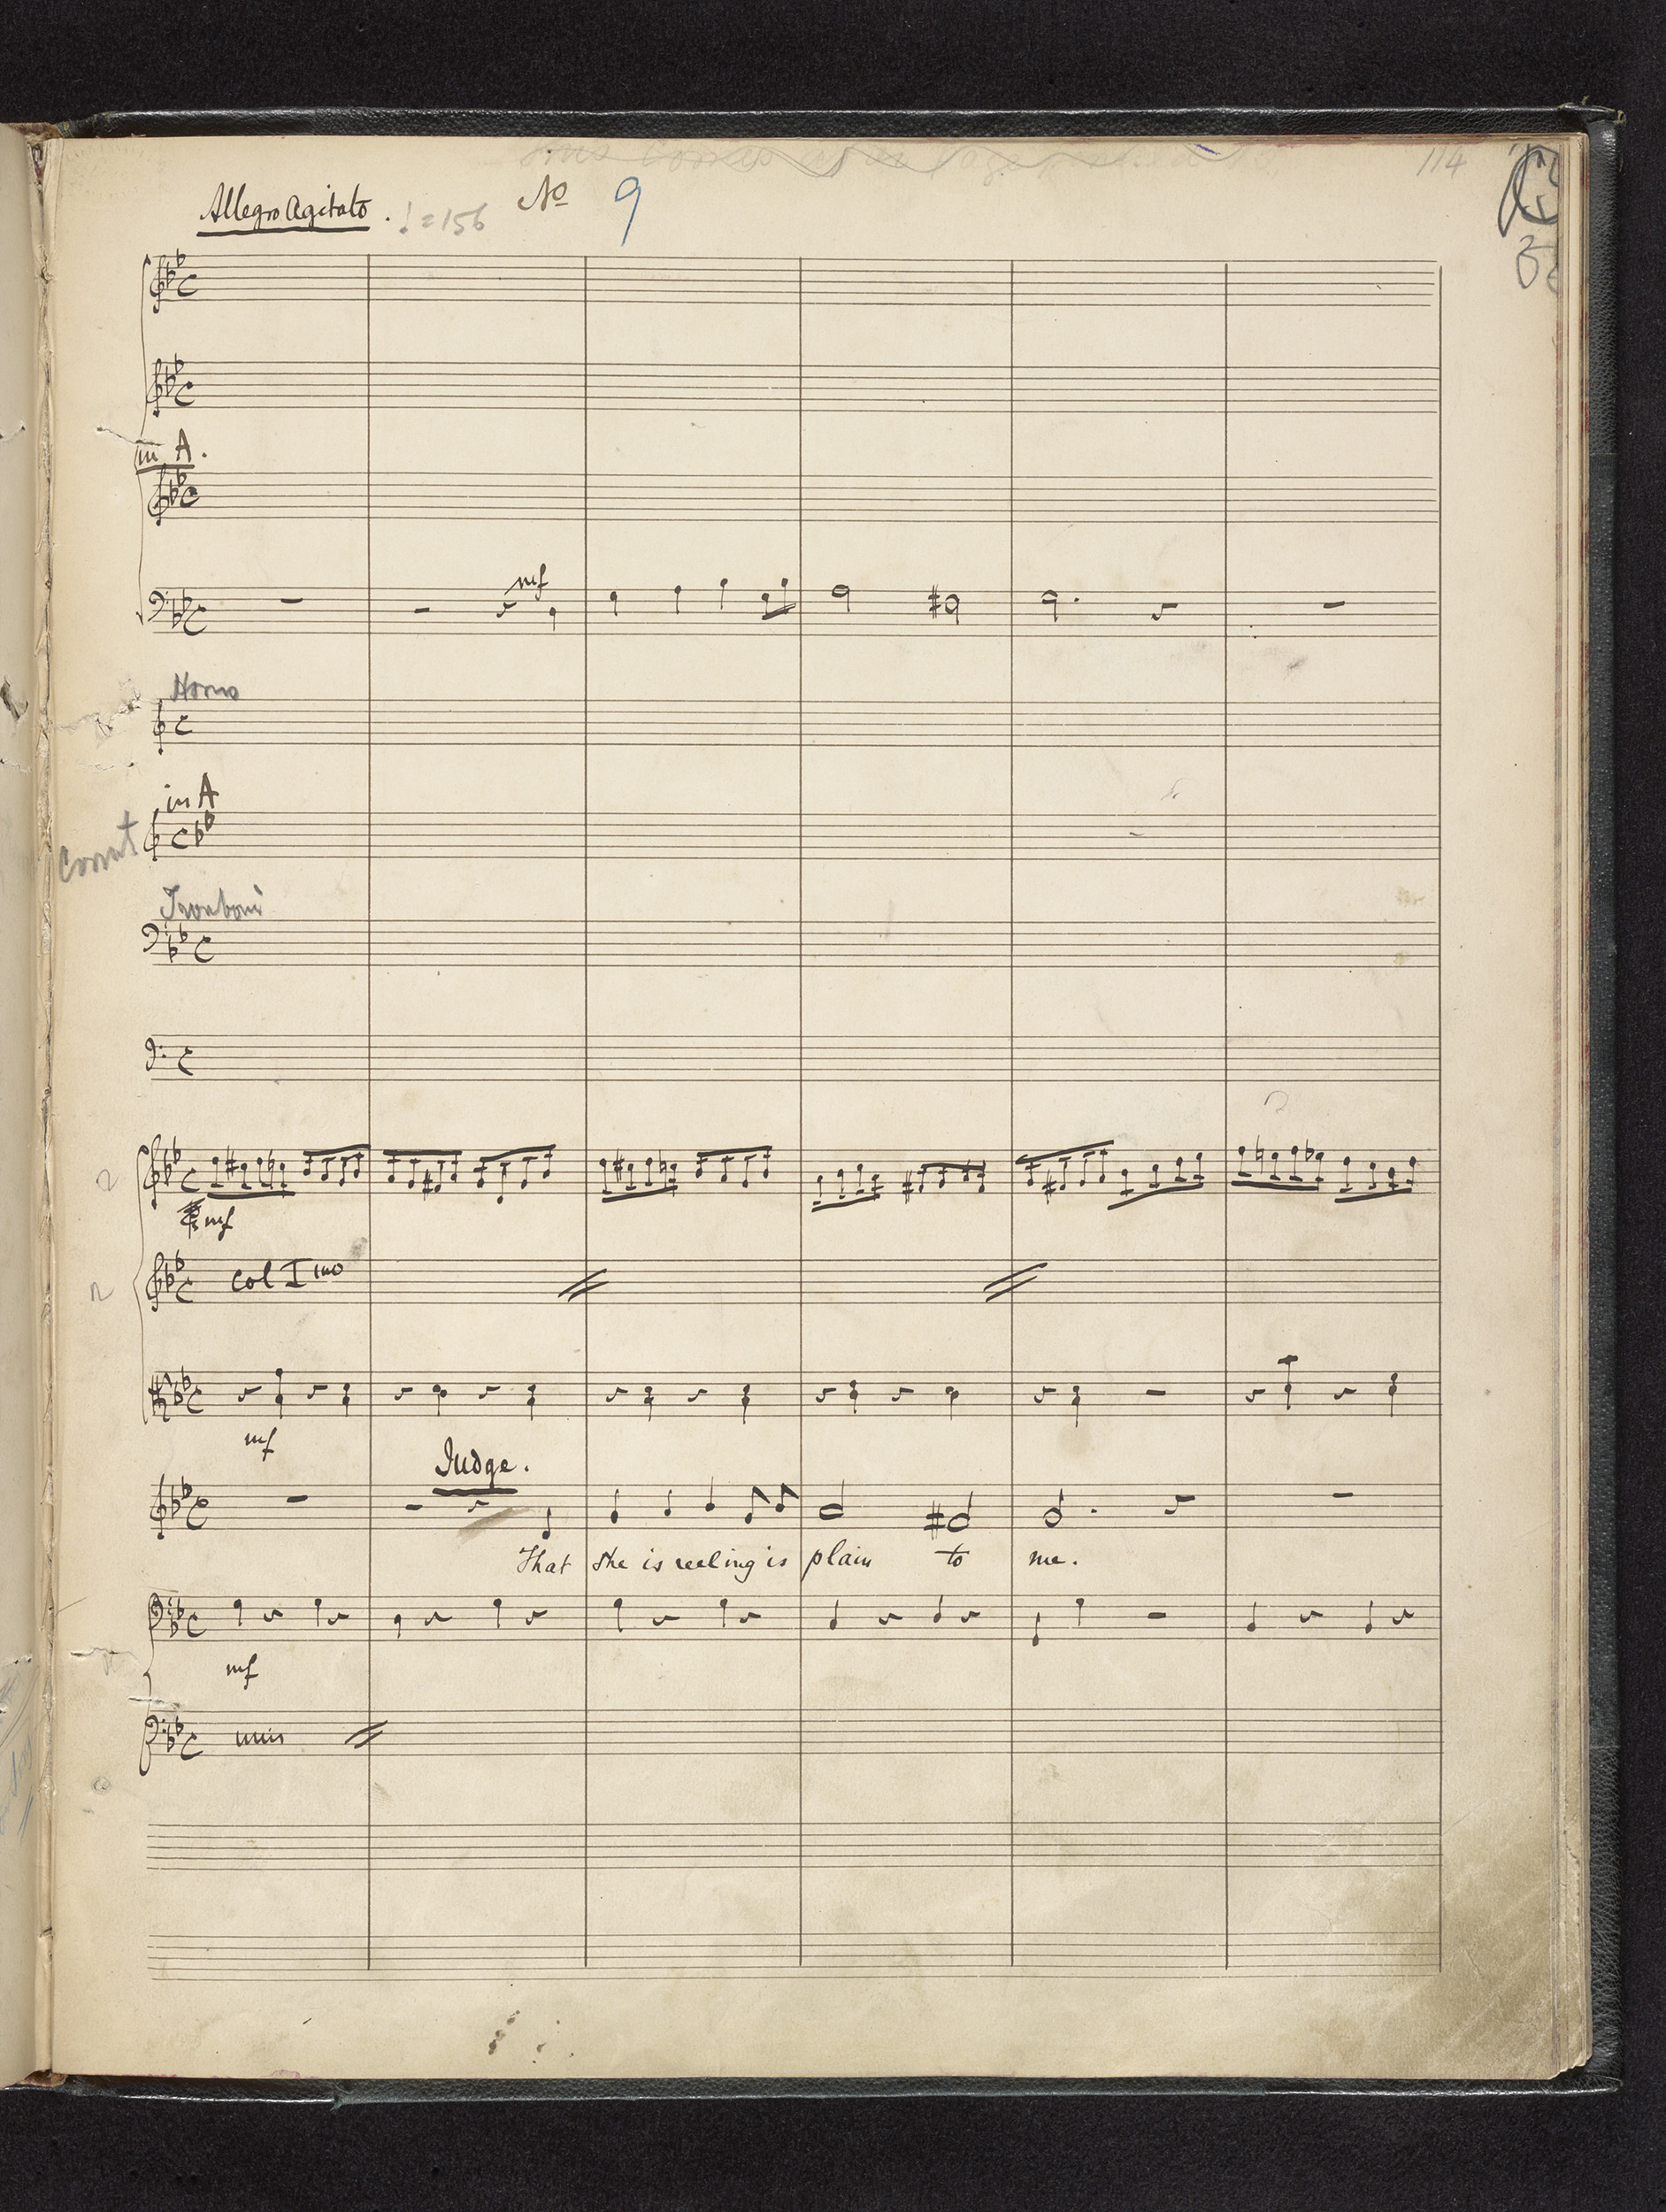 114
Allegro Agitato. ♩=156 No 9
in A.
mf
Horns
in A
Cornet
Tromboni
2
mf
2
col Imo
mf
Judge.
That she is reeling is plain to me.
mf
unis